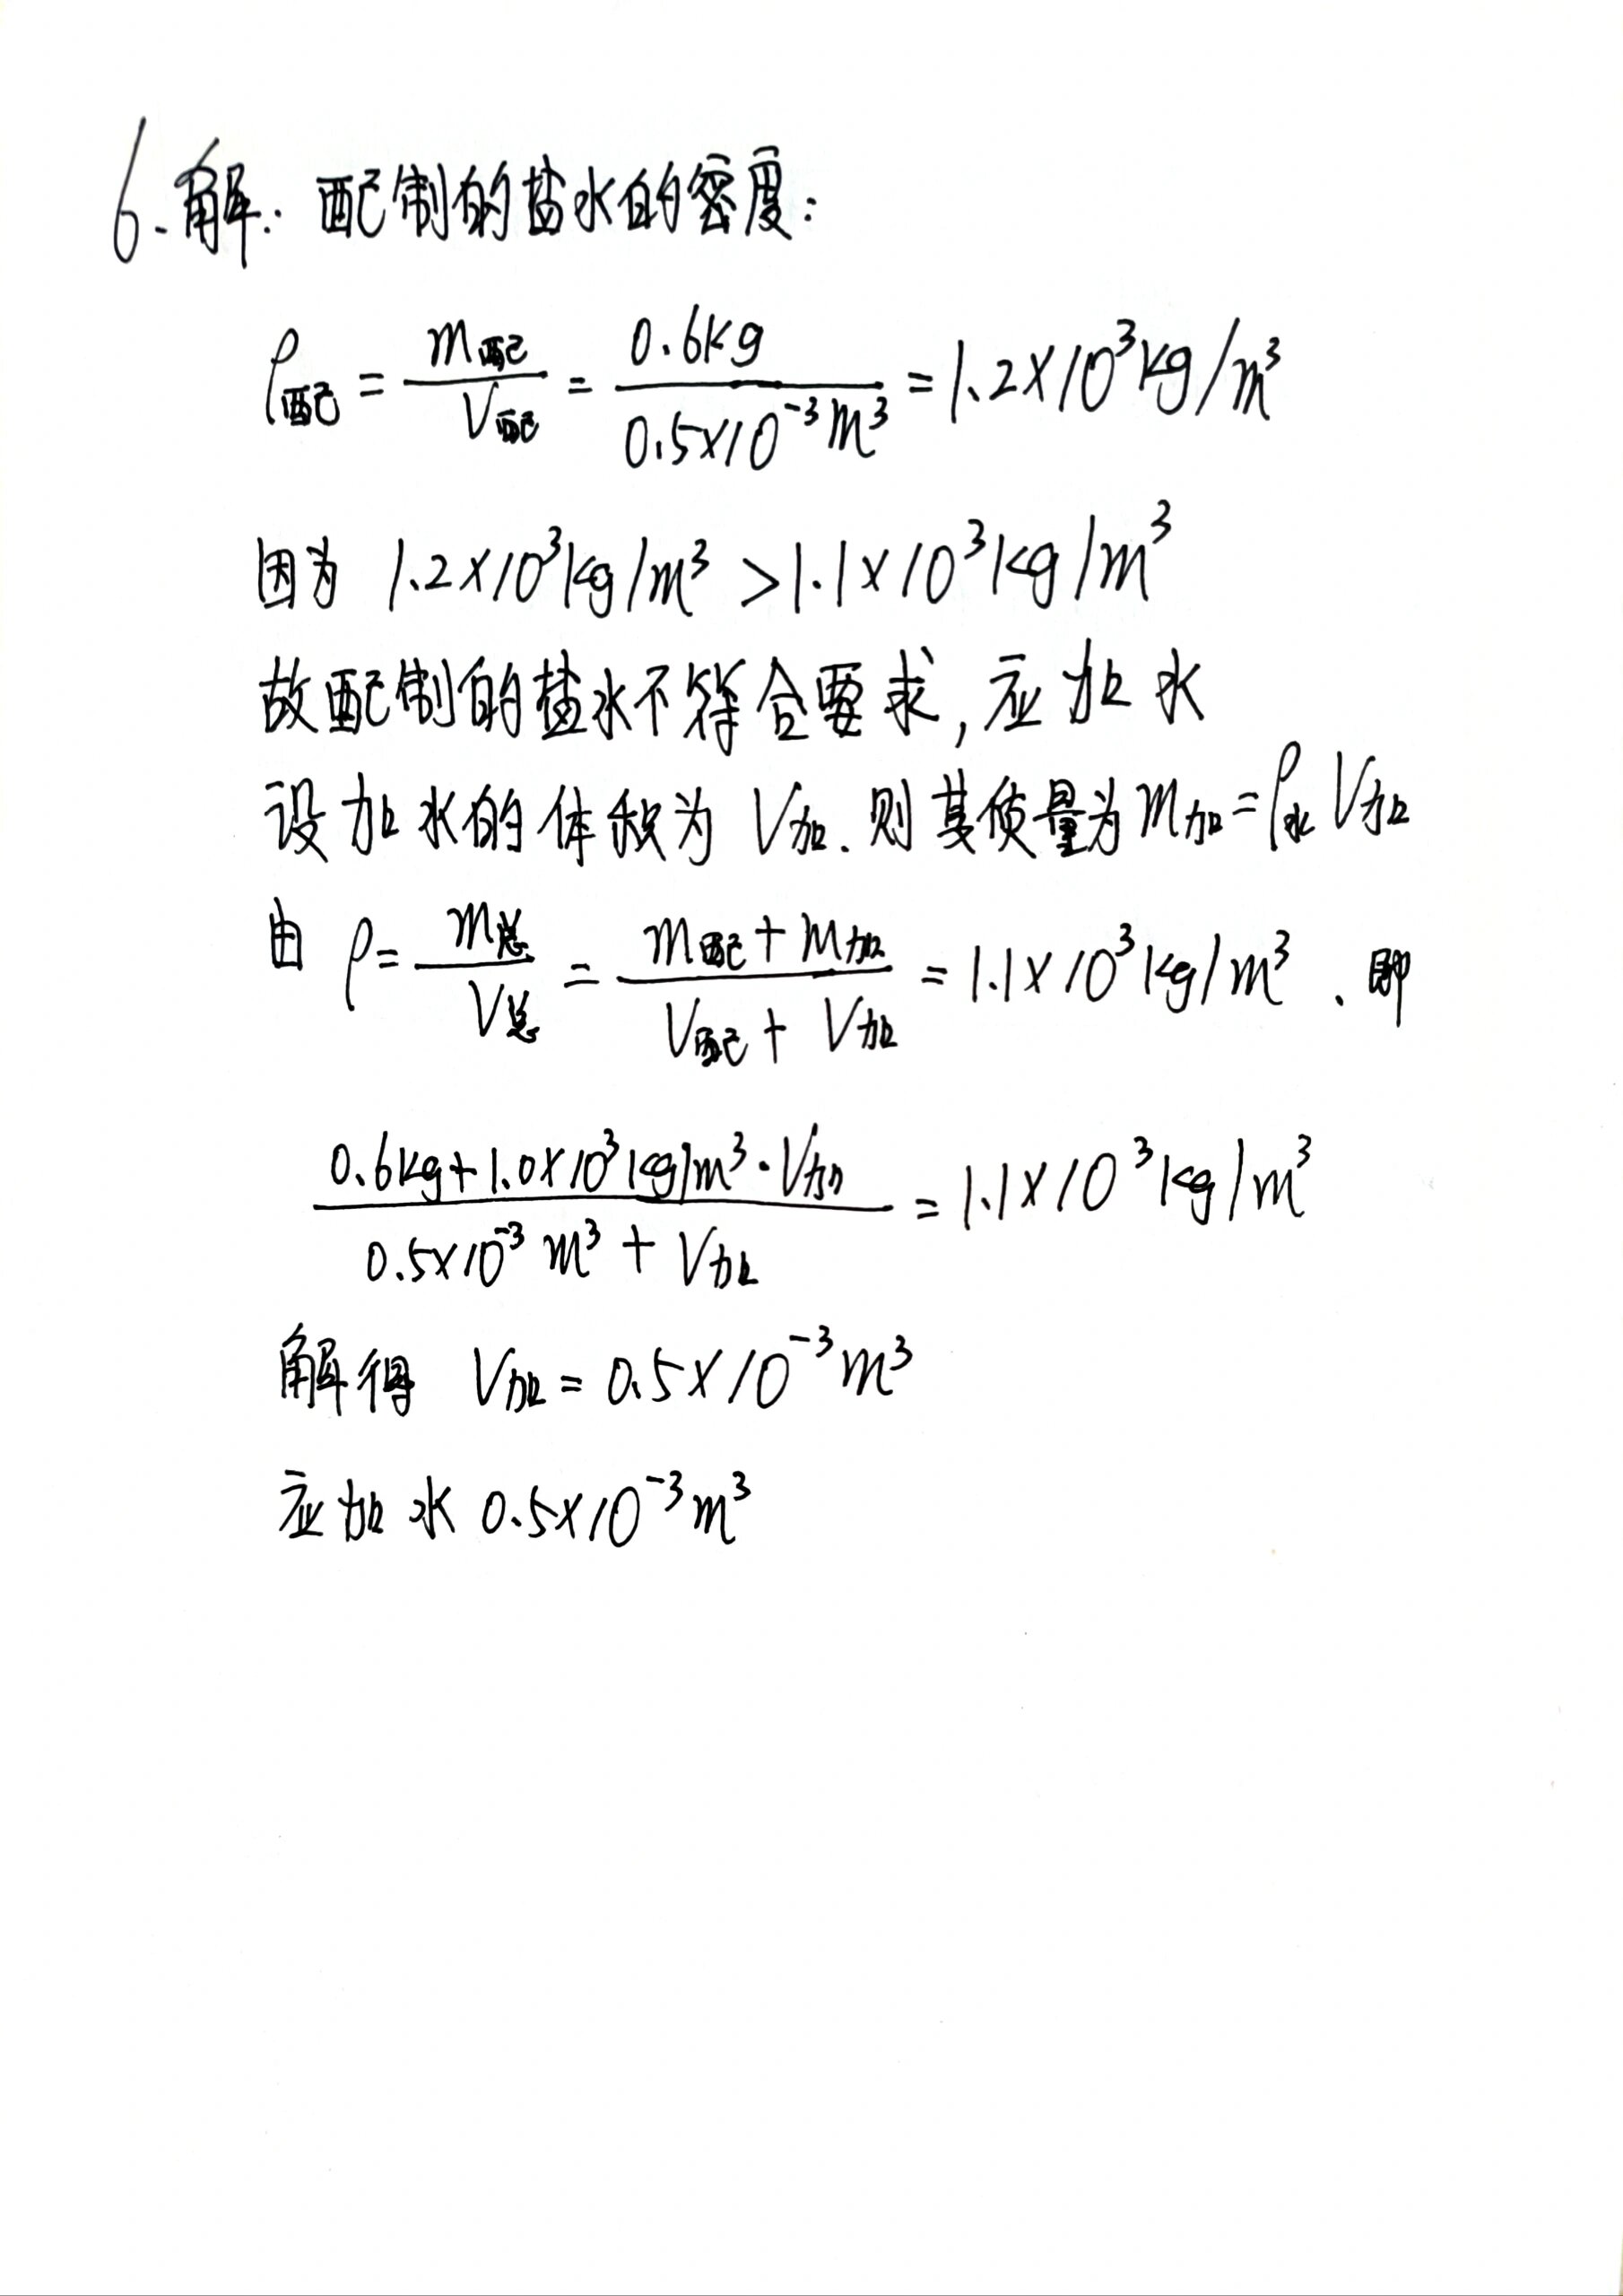 6.解：配制的盐水的密度：
ρ配 = m配/V配 = 0.6kg/0.5×10⁻³m³ = 1.2×10³kg/m³
因为 1.2×10³kg/m³ > 1.1×10³kg/m³
故配制的盐水不符合要求,应加水
设加水的体积为 V加.则其质量为m加=ρ水V加
由 ρ= m总/V总 = (m配+m加)/(V配+V加) = 1.1×10³kg/m³、即
(0.6kg+1.0×10³kg/m³·V加)/(0.5×10⁻³m³+V加) = 1.1×10³kg/m³
解得 V加=0.5×10⁻³m³
应加水0.5×10⁻³m³